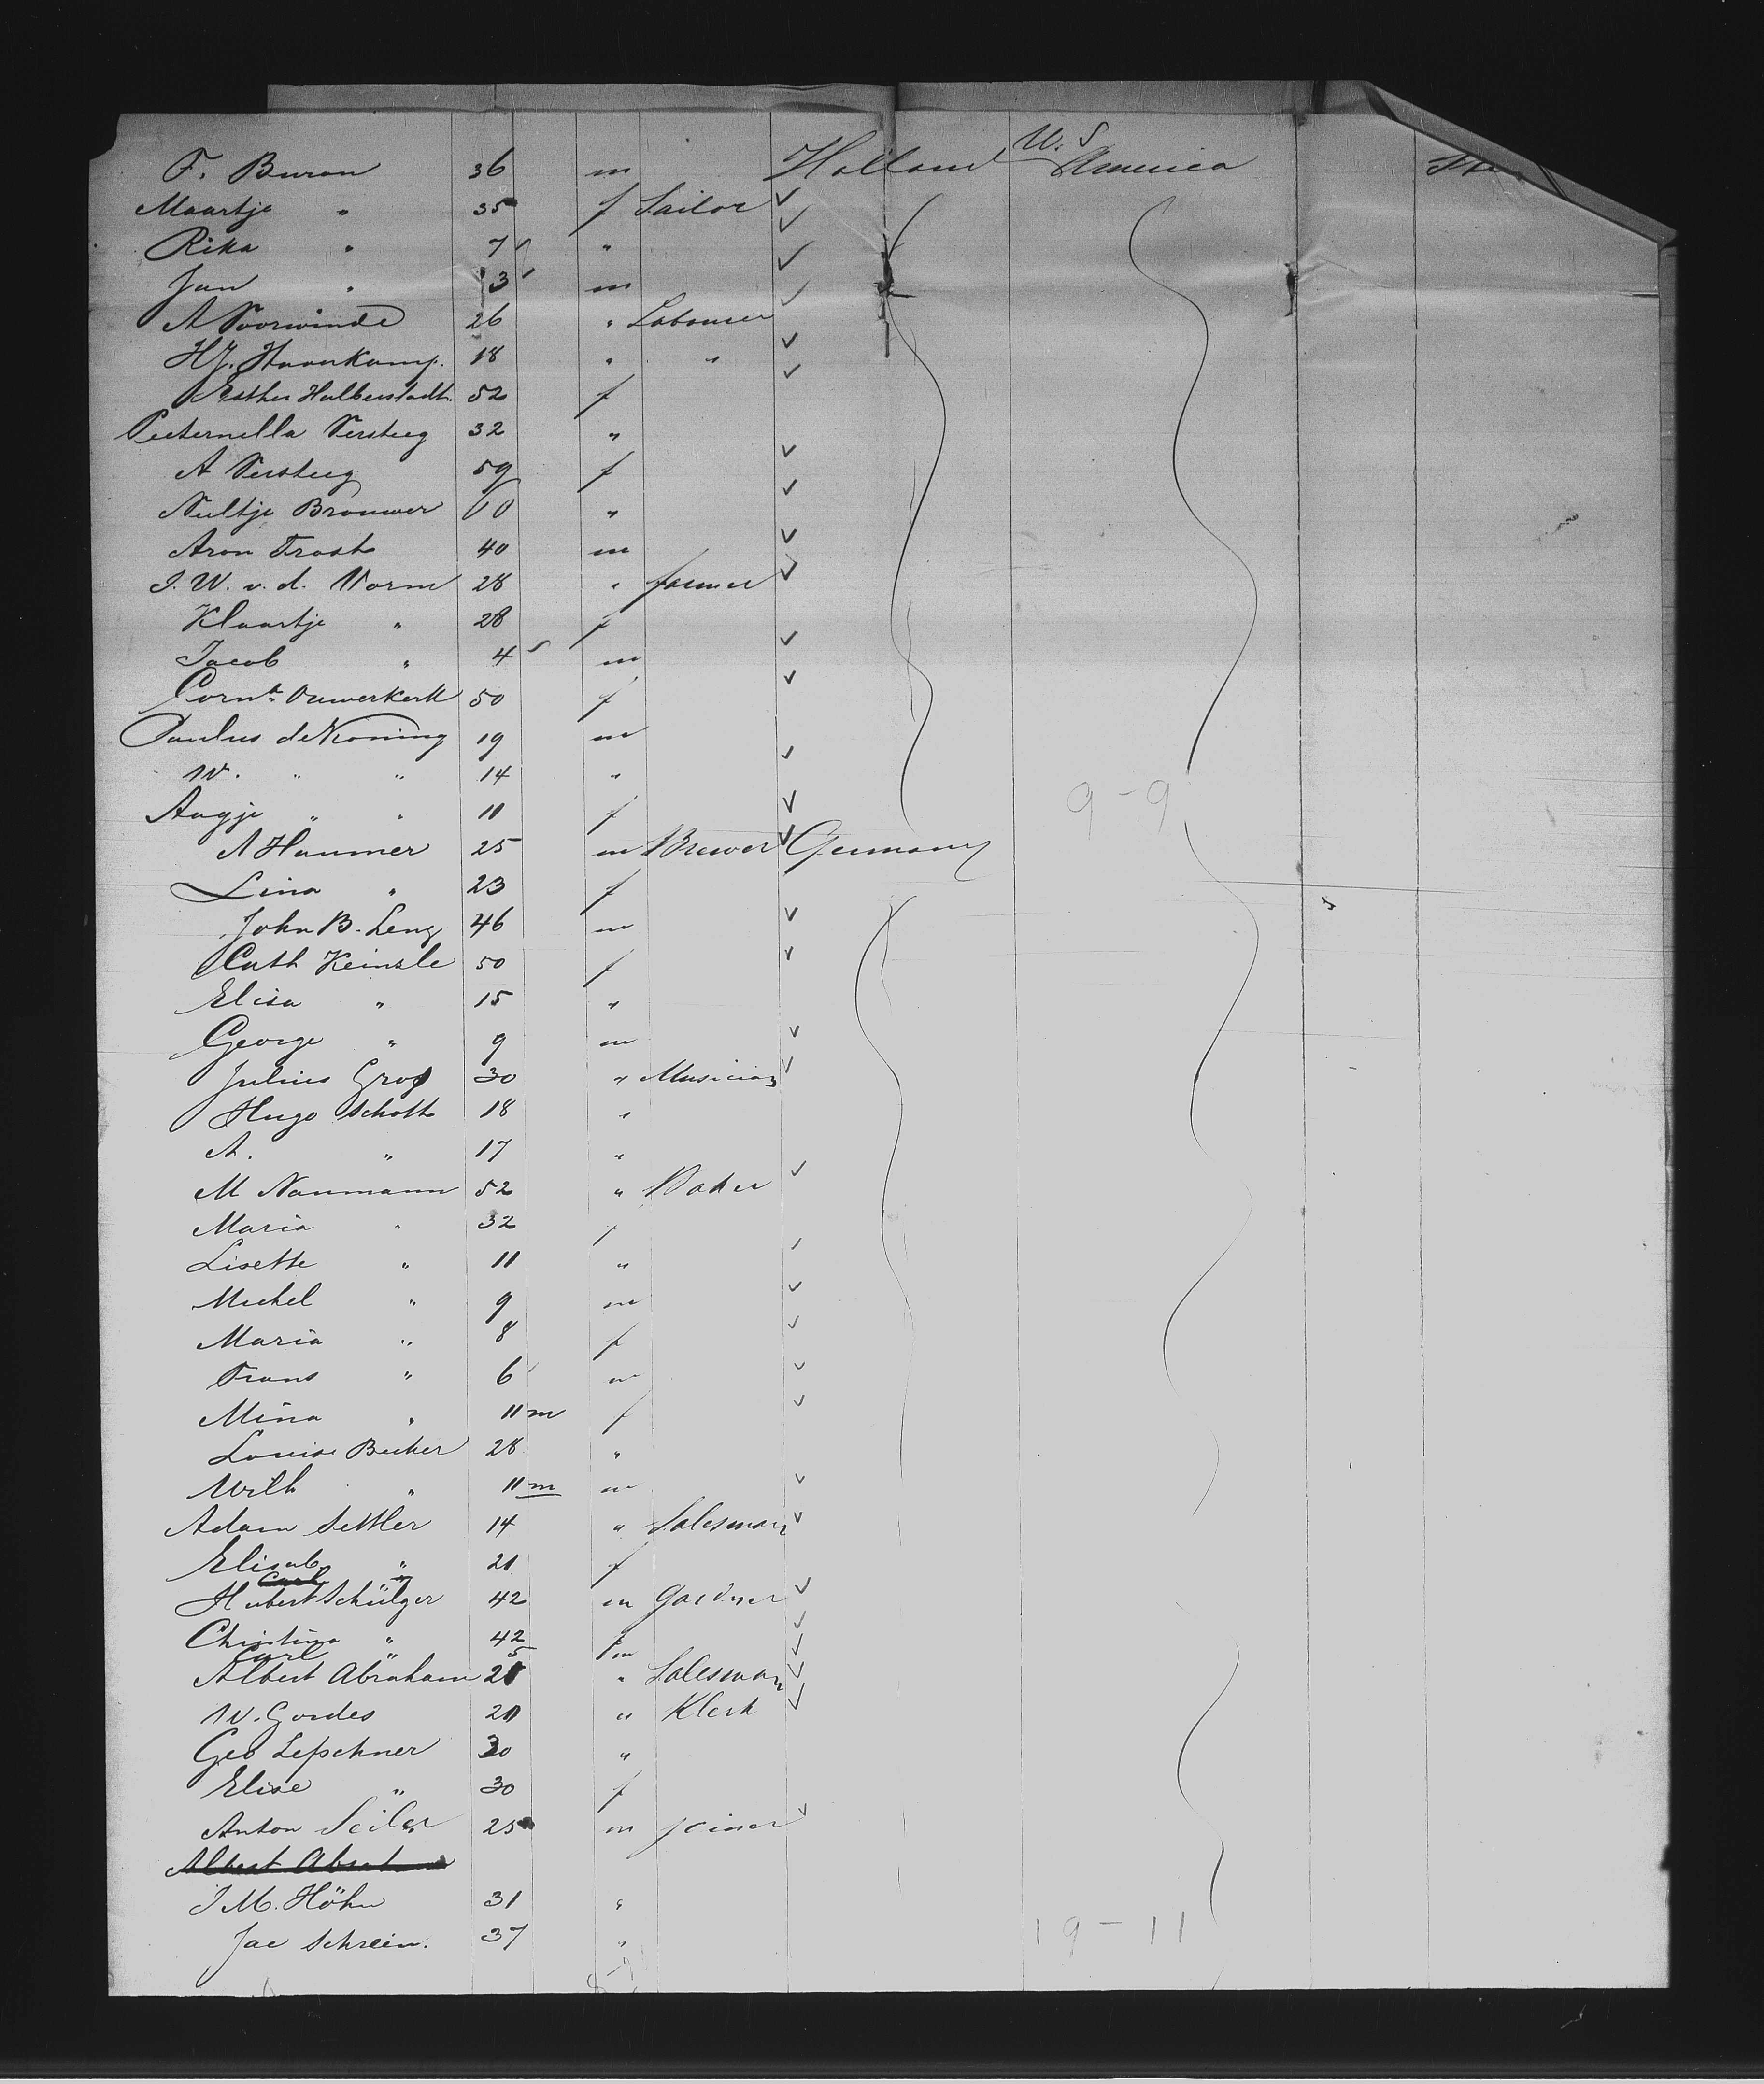 F. Buron 36 m Holland U.S America
Maartje " 35 f Sailor
Rika " 7 "
Jan " 3 m
A Voorwinde 26 " Labourer
HJ. Haverkamp. 18 " "
Esther Halberstadt. 52 f
Pieternella Versteeg 32 "
A Versteeg 59 f
Neeltje Brouwer 60 "
Aron Trost 40 m
J. W. v. d. Worm 28 " farmer
Klaartje " 28 f
Jacob " 4 m
Corna Ouwerkerk 50 f
Paulus de Koning 19 m
W. " " 14 "
Aagje " " 11 f
9-9
A Hammer 25 m Brewer Germany
Lina " 23 f
John B. Leng 46 m
Cath Keinzle 50 f
Elisa " 15 "
George " 9 m
Julius Gros 30 " Musician
Hugo Schott 18 "
A. " 17 "
M Naumann 52 " Baker
Maria " 32 f
Lisette " 11 "
Michel " 9 m
Maria " 8 f
Frans " 6 m
Mina " 11 m f
Louise Becker 28 "
Wilh " 11 m m
Adam Settler 14 " Salesman
Elisab " 21 f
Hubert Schülger 42 m Gardner
Christina " 42 f
Carl " 5 m
Albert Abraham 28 " Salesman
W. Gordes 20 " Klerk
Geo Leschner 30 "
Elise " 30 f
Anton Seiler 25 m joiner
Albert Abraham
J M. Höhn 31 "
Jac Schrein. 37 "
19-11